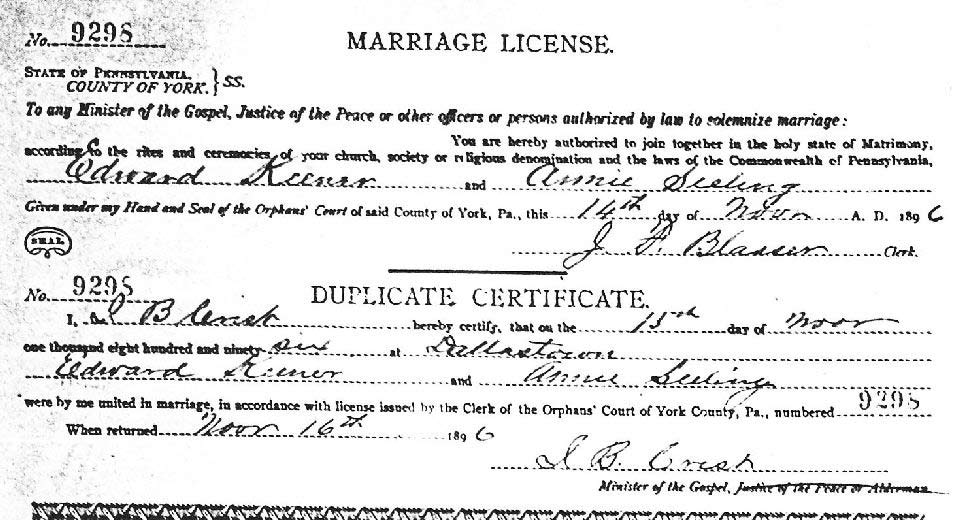 No. 9298
MARRIAGE LICENSE.
STATE OF PENNSYLVANIA,
COUNTY OF YORK, } SS.
To any Minister of the Gospel, Justice of the Peace or other officers or persons authorized by law to solemnize marriage:
You are hereby authorized to join together in the holy state of Matrimony,
according to the rites and ceremonies of your church, society or religious denomination and the laws of the Commonwealth of Pennsylvania,
Edward Keener and Annie Seeling
Given under my Hand and Seal of the Orphans' Court of said County of York, Pa., this 14th day of Novr A. D. 1896
SEAL
J. F. Blasser Clerk.
No. 9298
DUPLICATE CERTIFICATE.
I, B Crist hereby certify, that on the 15th day of Novr
one thousand eight hundred and ninety six at Dallastown
Edward Keener and Annie Seeling
were by me united in marriage, in accordance with license issued by the Clerk of the Orphans' Court of York County, Pa., numbered 9298
When returned Novr 16th 1896
I B. Crist
Minister of the Gospel, Justice of the Peace or Alderman.